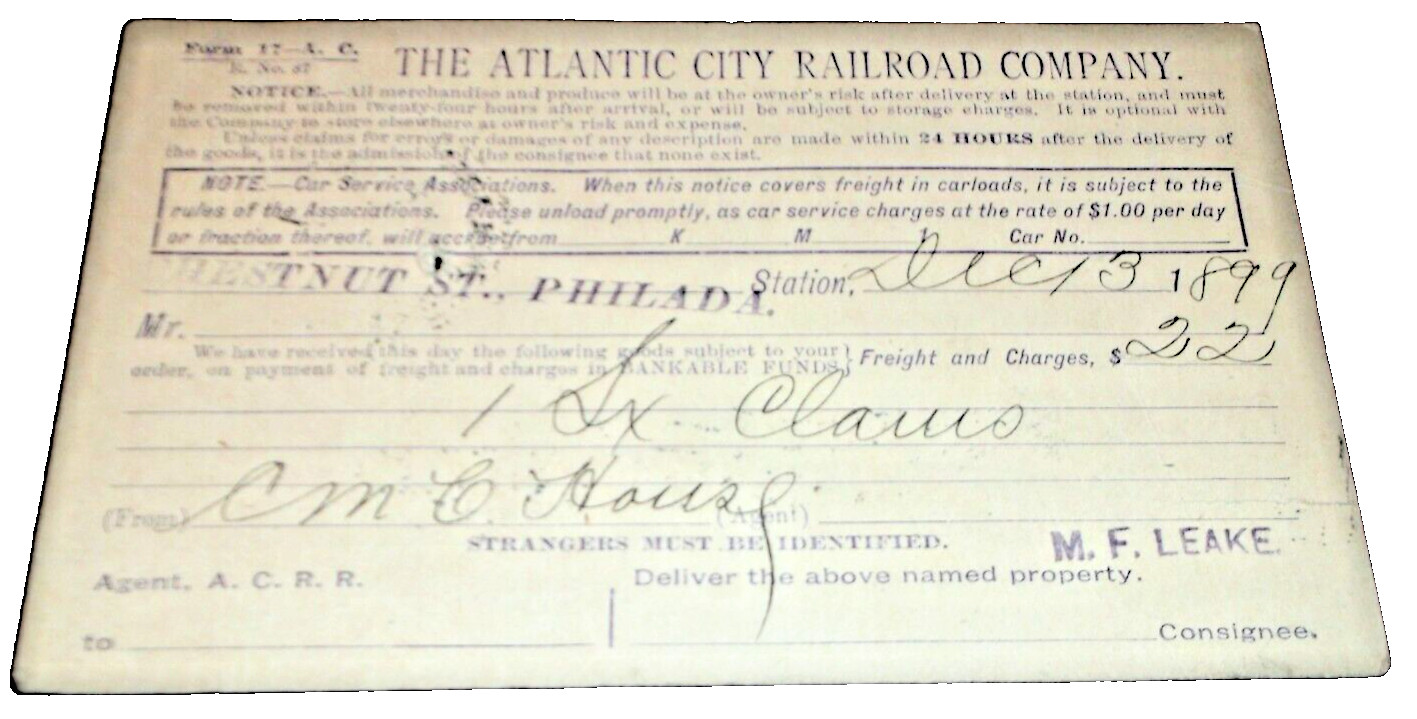 Form 17—A. C.
R. No. 87
THE ATLANTIC CITY RAILROAD COMPANY.
NOTICE.—All merchandise and produce will be at the owner's risk after delivery at the station, and must
be removed within twenty-four hours after arrival, or will be subject to storage charges. It is optional with
the Company to store elsewhere at owner's risk and expense.
Unless claims for errors or damages of any description are made within 24 HOURS after the delivery of
the goods, it is the admission of the consignee that none exist.
NOTE.—Car Service Associations. When this notice covers freight in carloads, it is subject to the
rules of the Associations. Please unload promptly, as car service charges at the rate of $1.00 per day
or fraction thereof, will accrue from K M 1 Car No.
CHESTNUT ST., PHILADA. Station, Dec 13 1899
Mr.
We have received this day the following goods subject to your
order, on payment of freight and charges in BANKABLE FUNDS, } Freight and Charges, $ 22
1 Sx Clams
(From) C M C House (Agent)
STRANGERS MUST BE IDENTIFIED. M. F. LEAKE.
Agent, A. C. R. R. Deliver the above named property.
to Consignee.